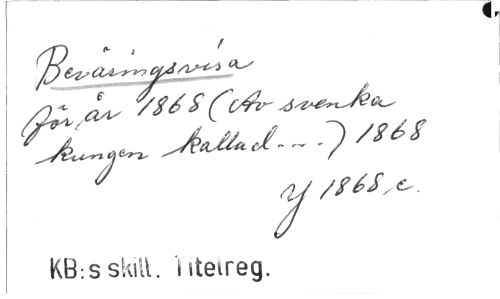 Beväringsvisa
för år 1868 (Av svenka
kungen kallad....) 1868
Y 1868, c.
KB:s skill. Titelreg.